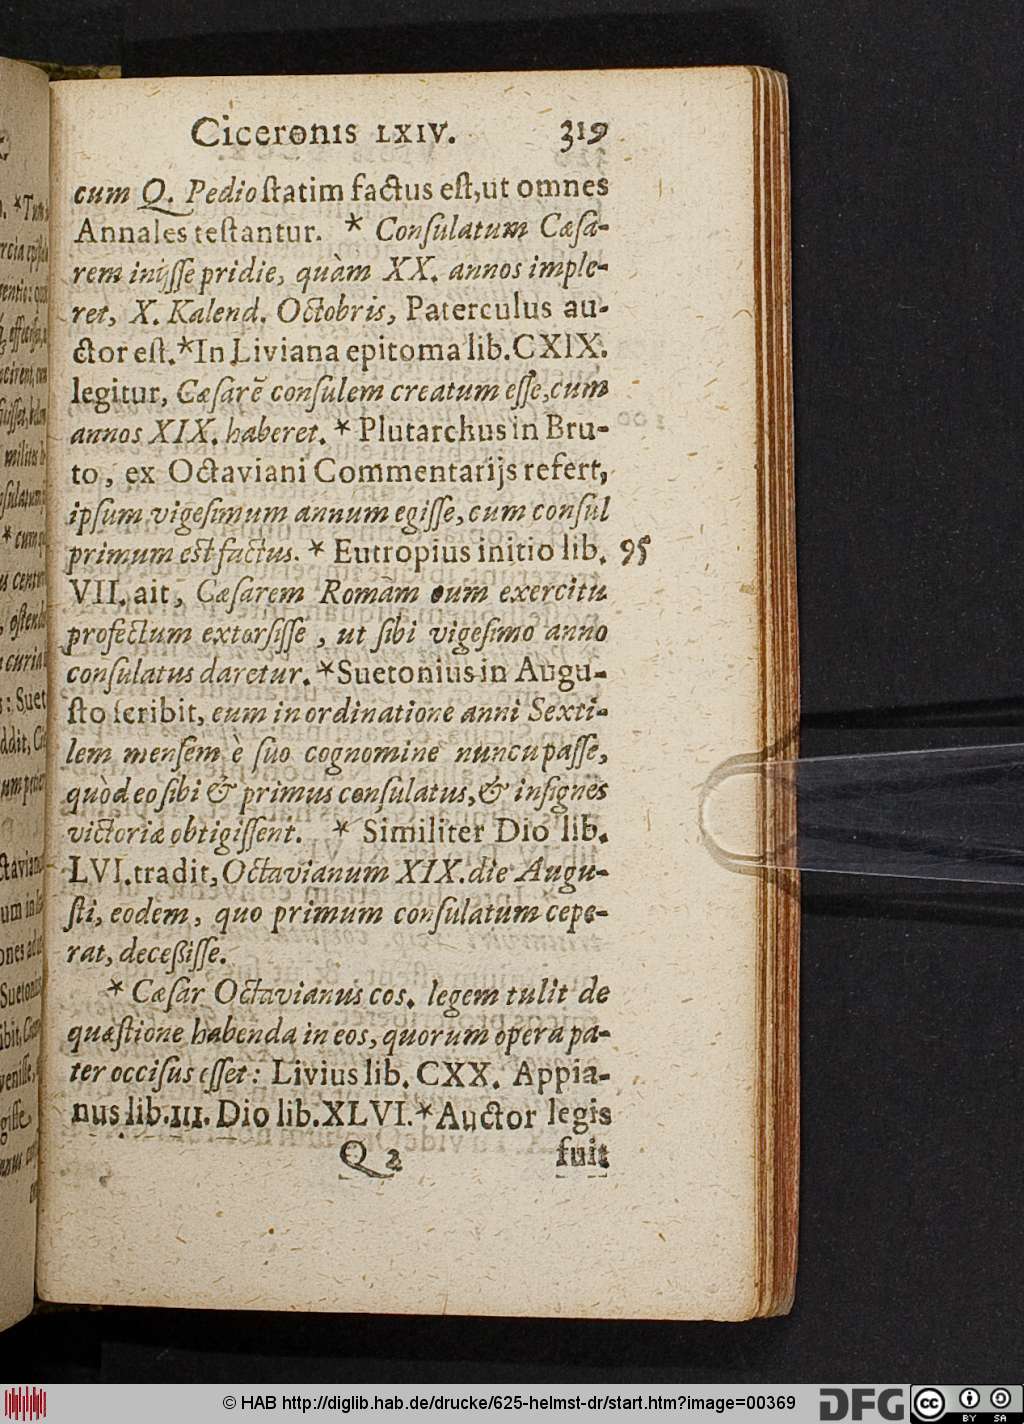 Ciceronis LXIV. 319
cum Q. Pedio ſtatim factus eſt, ut omnes
Annales teſtantur. * Conſulatum Cæſa-
rem inijſſe pridie, quàm XX. annos imple-
ret, X. Kalend. Octobris, Paterculus au-
ctor eſt. * In Liviana epitoma lib. CXIX.
legitur, Cæſarē conſulem creatum eſſe, cum
annos XIX. haberet. * Plutarchus in Bru-
to, ex Octaviani Commentarijs refert,
ipſum vigeſimum annum egiſſe, cum conſul
primum eſt factus. * Eutropius initio lib. 95
VII. ait, Cæſarem Romam cum exercitu
profectum extorſiſſe, ut ſibi vigeſimo anno
conſulatus daretur. * Suetonius in Augu-
ſto ſcribit, eum in ordinatione anni Sexti-
lem menſem è ſuo cognomine nuncupaſſe,
quòd eo ſibi & primus conſulatus, & inſignes
victoriæ obtigiſſent. * Similiter Dio lib.
LVI. tradit, Octavianum XIX. die Augu-
ſti, eodem, quo primum conſulatum cepe-
rat, deceßiſſe.
* Cæſar Octavianus cos. legem tulit de
quæſtione habenda in eos, quorum opera pa-
ter occiſus eſſet: Livius lib. CXX. Appia-
nus lib. III. Dio lib. XLVI. * Auctor legis
Q 2 fuit
© HAB http://diglib.hab.de/drucke/625-helmst-dr/start.htm?image=00369
DFG
cc BY SA